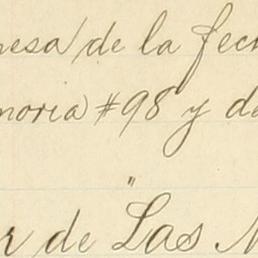 esa de la fech
moria #98 y de
r de "Las